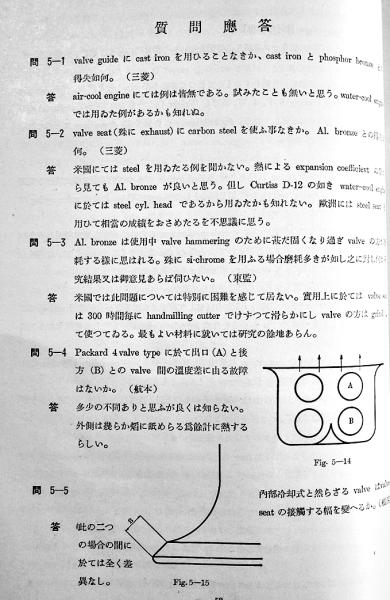 質問應答
問 5—1 valve guide に cast iron を用ひることなきか、cast iron と phosphor bronze と
得失如何。(三菱)
答 air-cool engine にては例は皆無である。試みたことも無いと思う。water-cool
では用ゐた例があるかも知れぬ。
問 5—2 valve seat (殊に exhaust) に carbon steel を使ふ事なきか。Al. bronze との
何。(三菱)
答 米國にては steel を用ゐたる例を聞かない。熱による expansion coefficient
ら見ても Al. bronze が良いと思う。但し Curtiss D-12 の如き water-cool
に於ては steel cyl. head であるから用ゐたかも知れない。歐洲には steel
用ひて相當の成績をおさめたるを不思議に思う。
問 5—3 Al. bronze は使用中 valve hammering のために甚だ固くなり過ぎ valve の
耗する樣に思はれる。殊に si-chrome を用ふる場合磨耗多きが如し之に對し
究結果又は御意見あらば伺ひたい。(東監)
答 米國では此問題については特別に困難を感じて居ない。實用上に於ては valve
は 300 時間毎に handmilling cutter でけずつて滑らかにし valve の方は
て使つてゐる。最もよい材料に就いては研究の餘地あらん。
問 5—4 Packard 4 valve type に於て出口 (A) と後
方 (B) との valve 間の溫度差に由る故障
はないか。(航本)
答 多少の不同ありと思ふが良くは知らない。
外側は幾らか焰に舐めらる爲餘計に熱する
らしい。
A
B
Fig. 5—14
問 5—5 內部冷却式と然らざる valve は valve
seat の接觸する幅を變へるか。
答 此の二つ
の場合の間に
於ては全く差
異なし。
B
Fig. 5—15